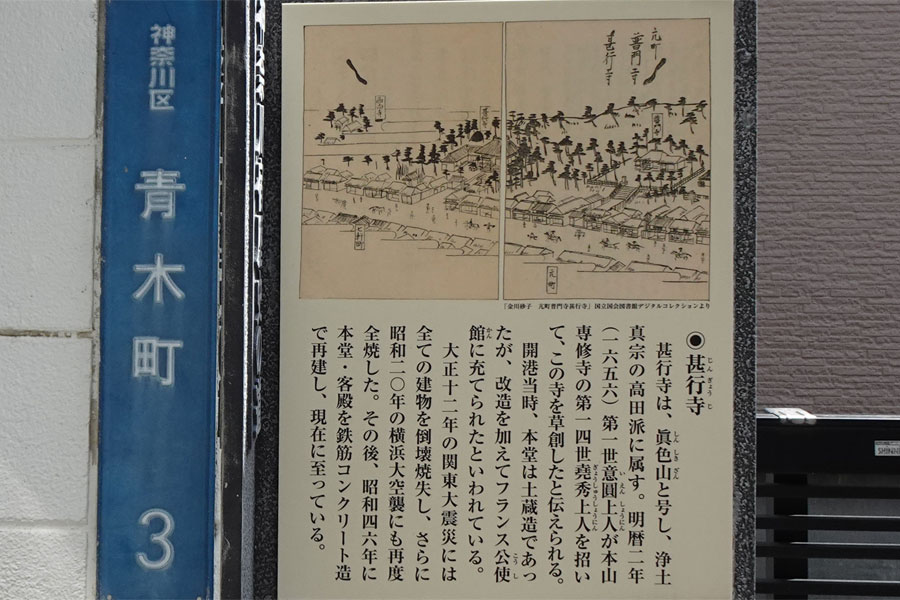 神奈川区
青木町
3
元町
普門寺
甚行寺
元町
「金川砂子 元町普門寺甚行寺」国立国会図書館デジタルコレクションより
●甚行寺
じんぎょうじ
甚行寺は、眞色山と号し、浄土
しんしきざん
真宗の高田派に属す。明暦二年
(一六五六)第一世意圓上人が本山
いえんしょうにん
専修寺の第一四世堯秀上人を招い
ぎょうしゅうしょうにん
て、この寺を草創したと伝えられる。
開港当時、本堂は土蔵造であっ
たが、改造を加えてフランス公使
こうし
館に充てられたといわれている。
かん
大正十二年の関東大震災には
全ての建物を倒壊焼失し、さらに
昭和二〇年の横浜大空襲にも再度
全焼した。その後、昭和四六年に
本堂・客殿を鉄筋コンクリート造
で再建し、現在に至っている。